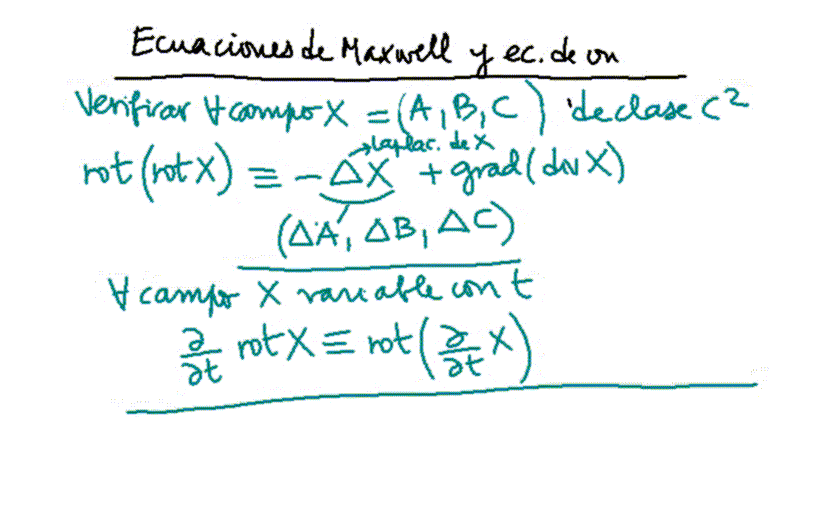 Ecuaciones de Maxwell y ec. de on
Verificar ∀ campo X = (A, B, C) de clase C²
→ laplac. de X
rot(rot X) ≡ - ΔX + grad(div X)
(ΔA, ΔB, ΔC)
∀ campo X variable con t
∂/∂t rot X ≡ rot(∂/∂t X)